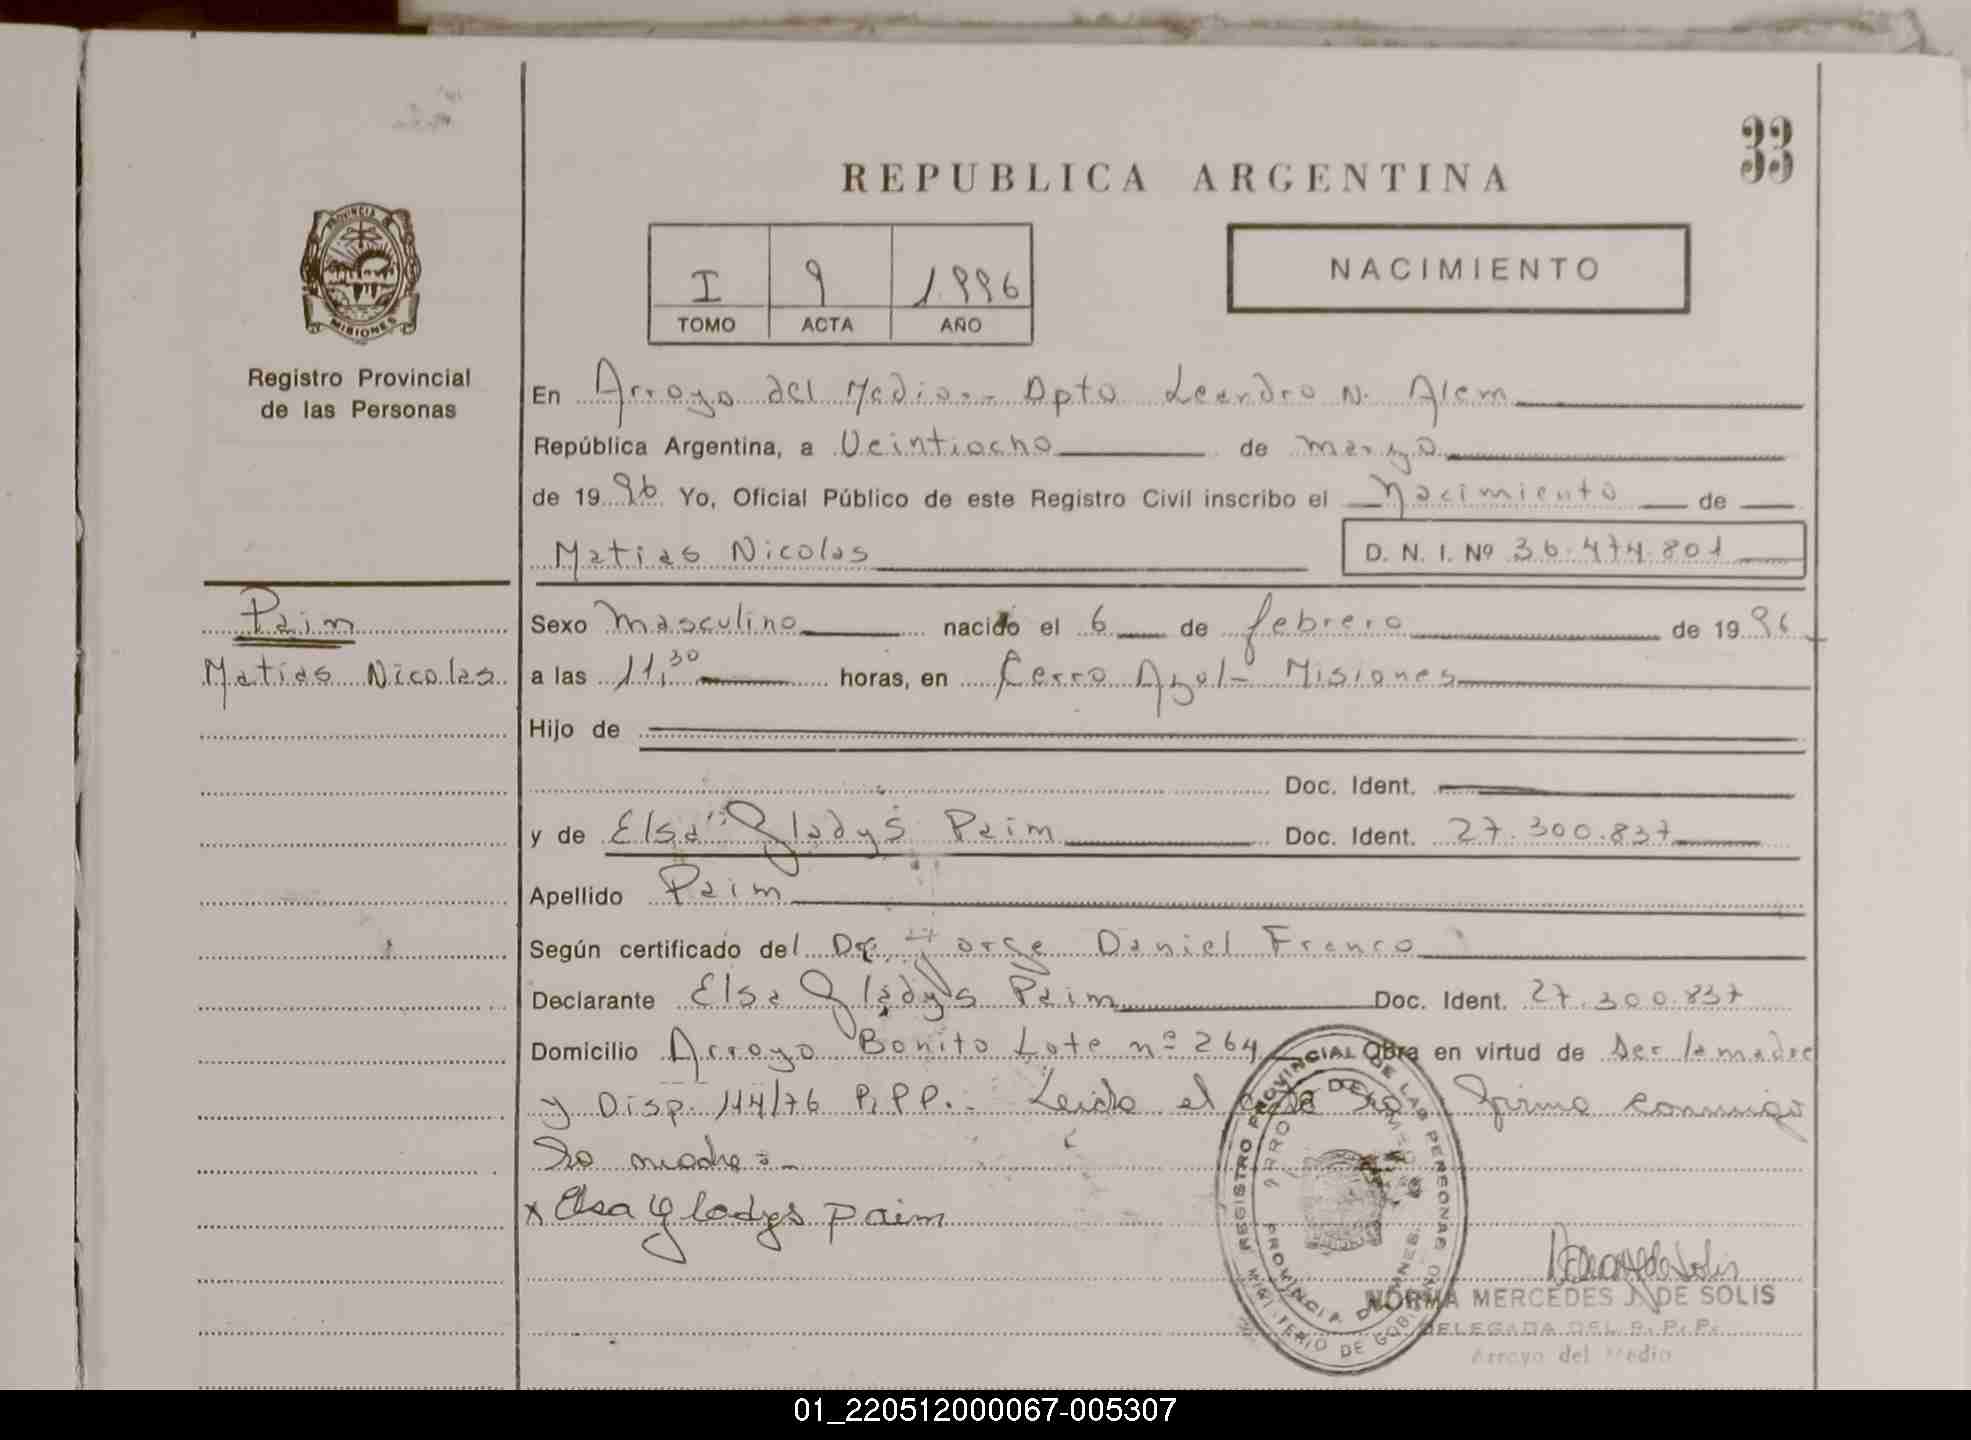 33
REPUBLICA ARGENTINA
PROVINCIA DE
MISIONES
Registro Provincial
de las Personas
I 9 1.996
TOMO ACTA AÑO
NACIMIENTO
En Arroyo del Medio.- Dpto Leandro N. Alem
República Argentina, a Veintiocho de marzo
de 1996 Yo, Oficial Público de este Registro Civil inscribo el Nacimiento de
Matias Nicolas D. N. I. Nº 36.474.801
Paim
Matias Nicolas
Sexo Masculino nacido el 6 de febrero de 1996
a las 11,30 horas, en Cerro Azul- Misiones
Hijo de
Doc. Ident.
y de Elsa Gladys Paim Doc. Ident. 27.300.837
Apellido Paim
Según certificado del Dr. Jorge Daniel Franco
Declarante Elsa Gladys Paim Doc. Ident. 27.300.837
Domicilio Arroyo Bonito Lote nº 264 Obra en virtud de ser la madre
y Disp. 114/76 R.P.P.- Leida el acta la firma conmigo
la madre.-
x Elsa Gladys Paim
REGISTRO PROVINCIAL DE LAS PERSONAS
MINISTERIO DE GOBIERNO
ARROYO DEL MEDIO
PROVINCIA DE MNES.
NORMA MERCEDES J. DE SOLIS
DELEGADA DEL R. P. P.
Arroyo del Medio
01_220512000067-005307